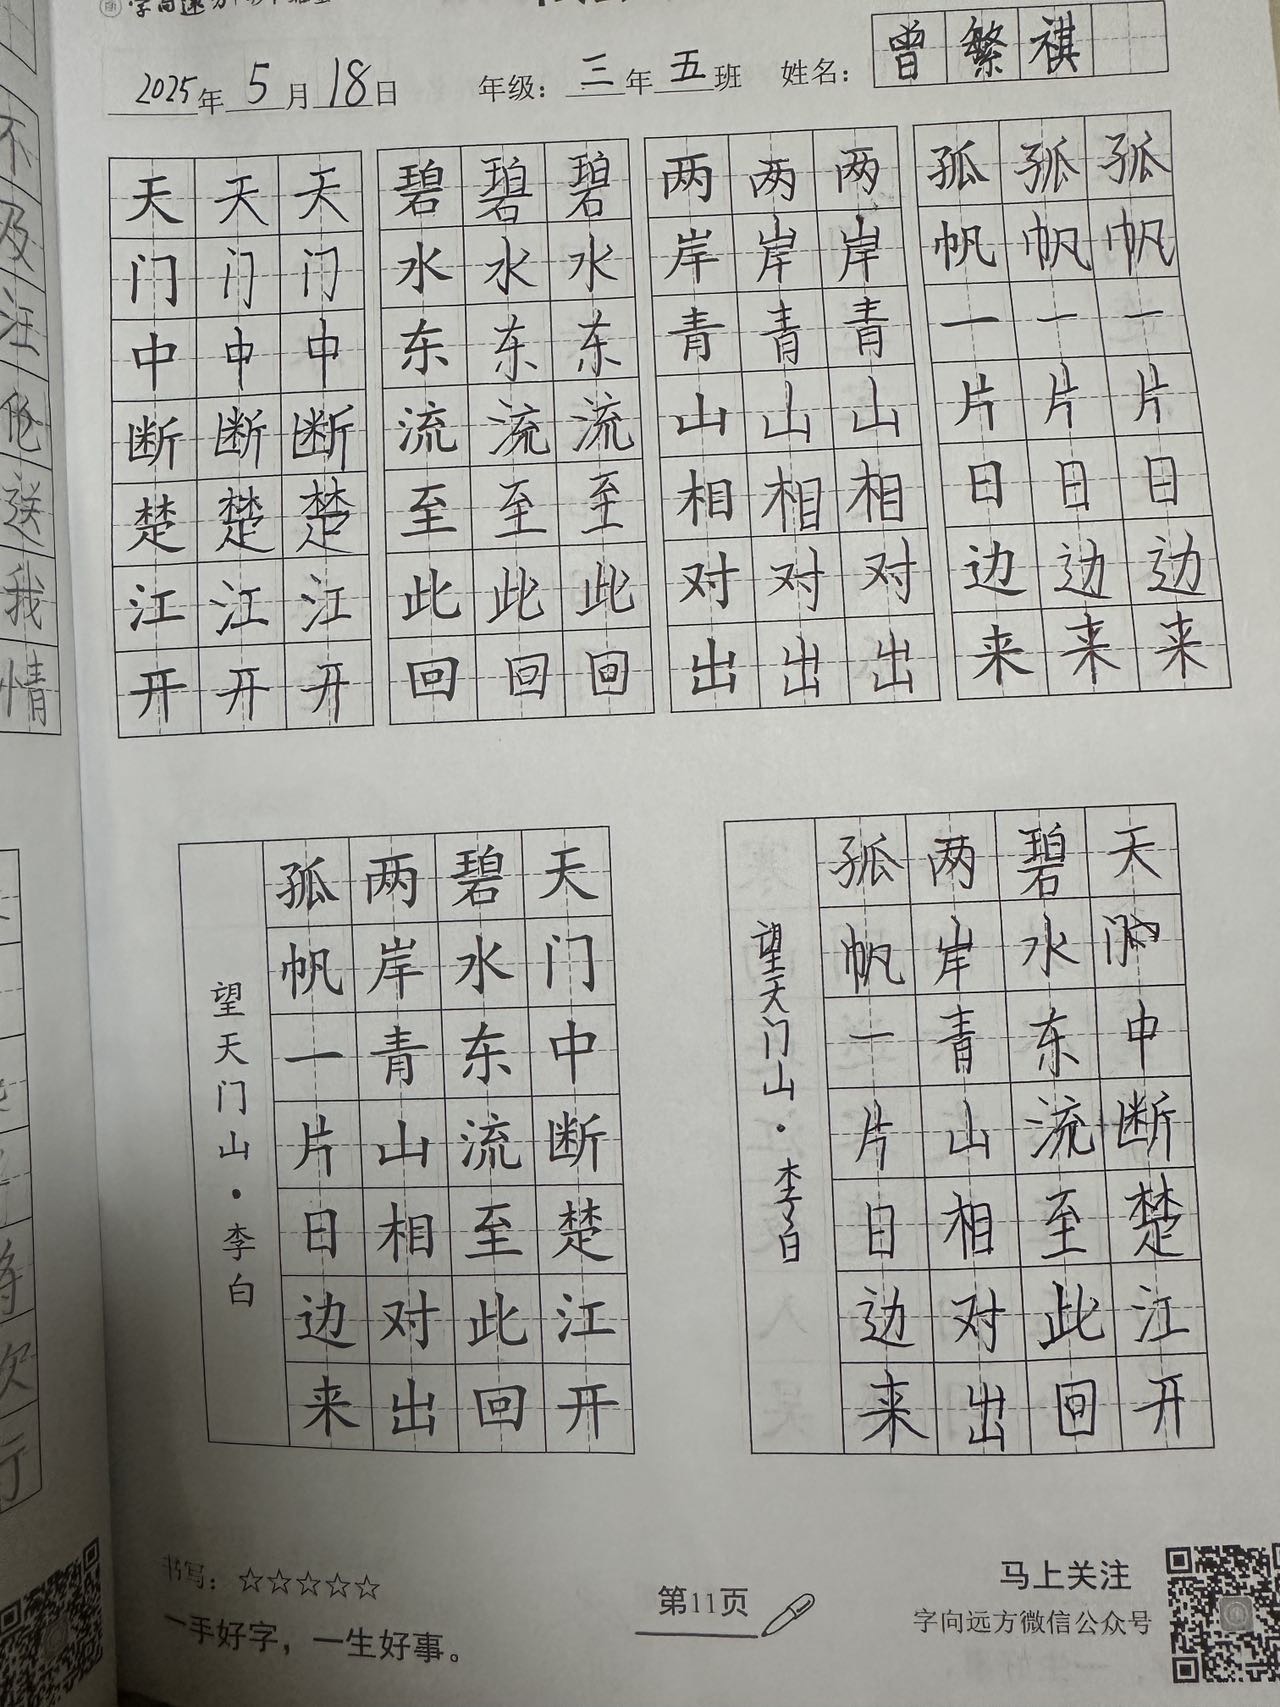 2025年5月18日 年级：三年五班 姓名：曾繁祺
天天天 碧碧碧 两两两 孤孤孤
门门门 水水水 岸岸岸 帆帆帆
中中中 东东东 青青青 一一一
断断断 流流流 山山山 片片片
楚楚楚 至至至 相相相 日日日
江江江 此此此 对对对 边边边
开开开 回回回 出出出 来来来
天门中断楚江开
碧水东流至此回
两岸青山相对出
孤帆一片日边来
望天门山·李白
天门中断楚江开
碧水东流至此回
两岸青山相对出
孤帆一片日边来
望天门山·李白
书写：☆☆☆☆☆
一手好字，一生好事。
第11页
马上关注
字向远方微信公众号
不及汪伦送我情